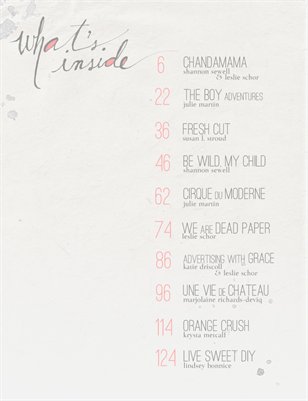 what's
inside
6 CHANDAMAMA
shannon sewell
& leslie schor
22 THE BOY ADVENTURES
julie martin
36 FRESH CUT
susan l. stroud
46 BE WILD, MY CHILD
shannon sewell
62 CIRQUE DU MODERNE
julie martin
74 WE ARE DEAD PAPER
leslie schor
86 ADVERTISING WITH GRACE
katie driscoll
& leslie schor
96 UNE VIE DE CHATEAU
marjolaine richards-deviq
114 ORANGE CRUSH
krysta metcalf
124 LIVE SWEET DIY
lindsey bonnice